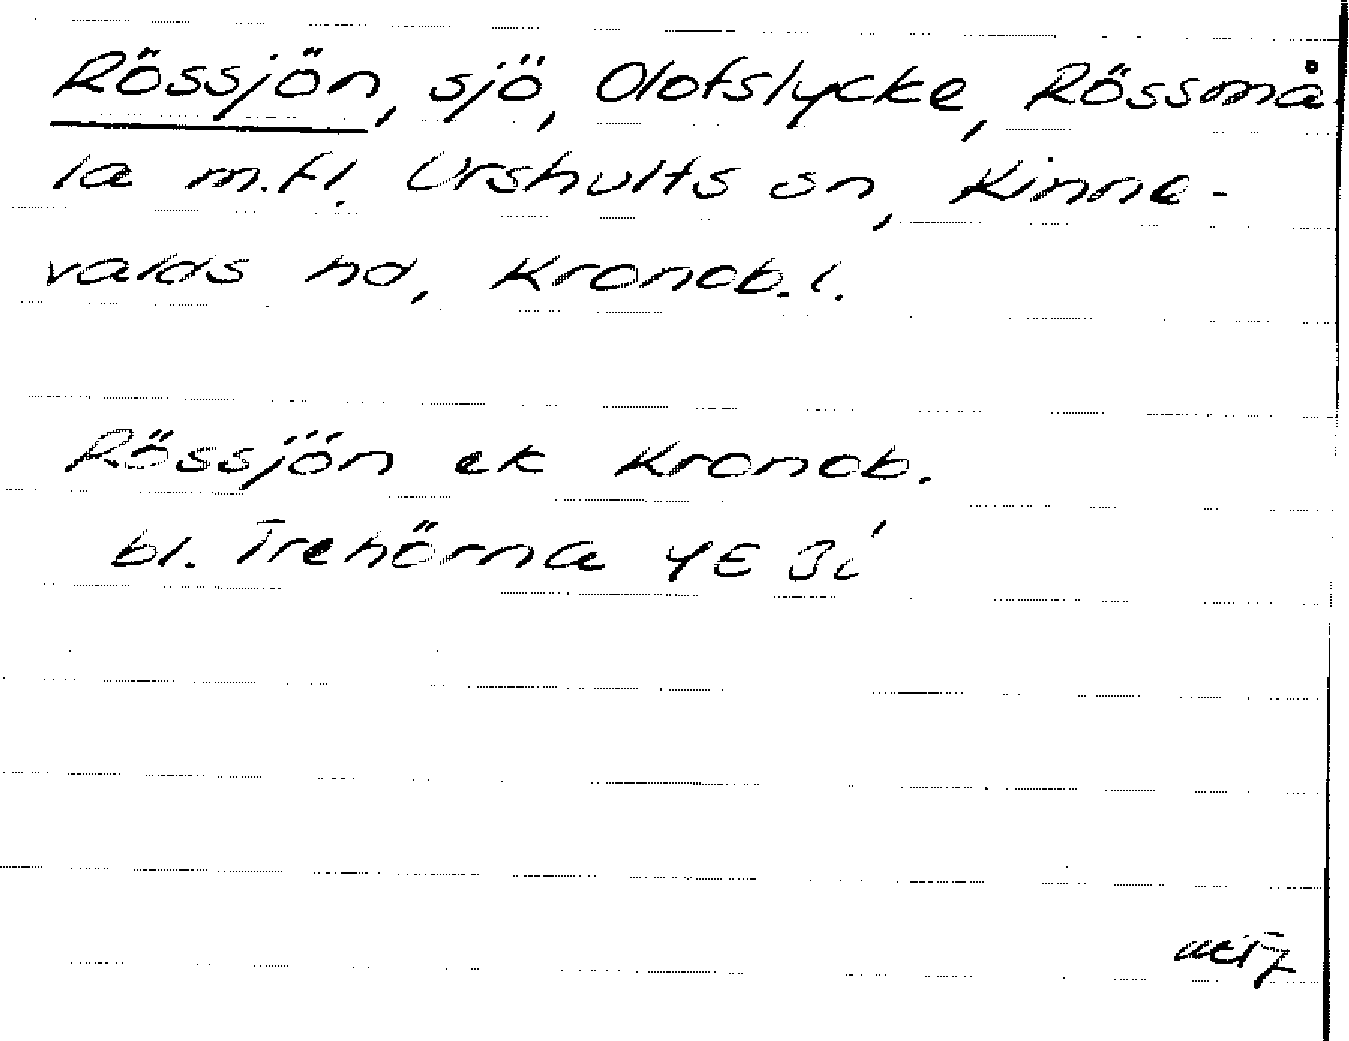 Rössjön, sjö, Olofslycke, Rössmå
la m.fl. Urshults sn, Kinne-
valds hd, Kronob.l.
Rössjön ek Kronob.
bl. Trehörna 4E 3i